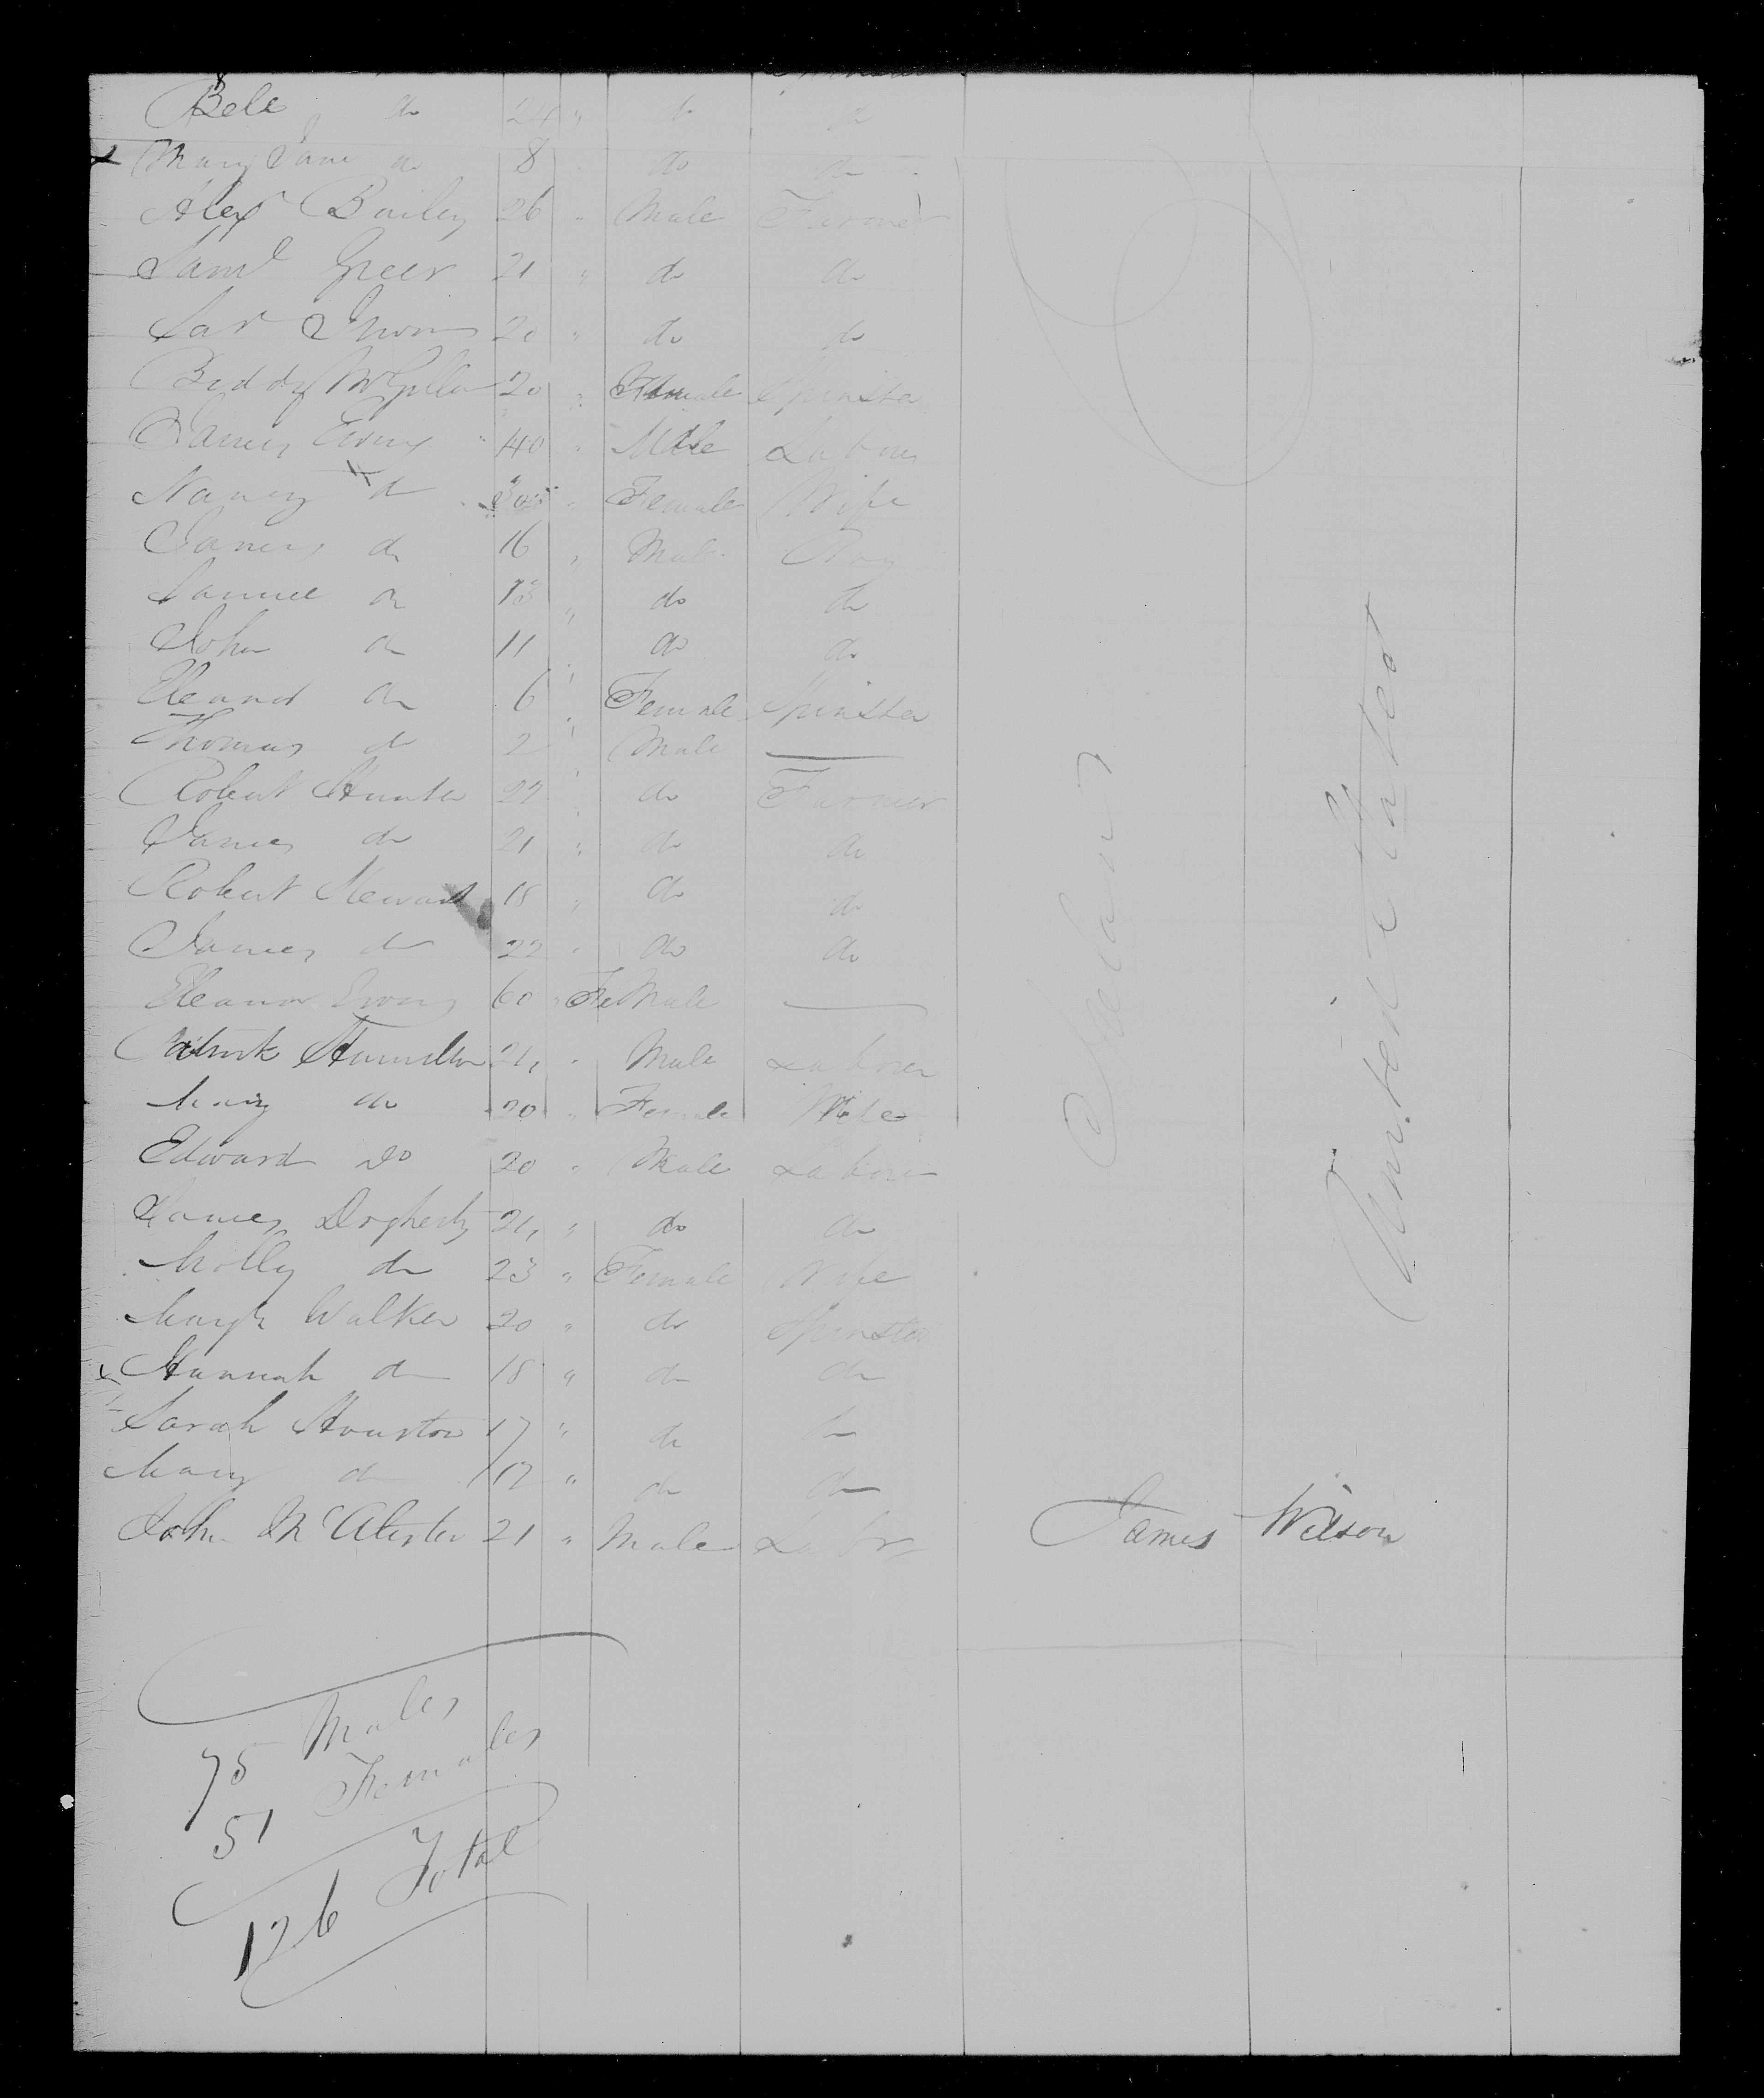 Bele do 24 " do do
Mary Jane do 8 " do do
Alexr Bailey 26 " Male Farmer
Saml Greer 21 " do do
20 " do do
Biddy 20 " Female Spinster
James Ewing 40 " Male Labour
Nancy do 30 " Female Wife
James do 16 " Male Boy
Samuel do 13 " do do
John do 11 " do do
Eleanor do 6 " Female Spinster
Thomas do 2 " Male —
Robert Hunter 22 " do Farmer
James do 21 " do do
Robert Stewart 18 " do do
James do 22 " do do
Eleanor Ewing 60 " FeMale —
Patrick Hamilton 21 " Male Labourer
Mary do 20 " Female Wife
Edward Do 20 " Male Labourer
James Dogherty 21 " do do
Molly do 23 " Female Wife
Margt Walker 20 " do Spinster
Hannah do 18 " do do
Sarah Houston 17 " do do
Mary do 12 " do do
John McAlester 21 " Male Labr
Ireland
United States
James Wilson
75 Males
51 Females
126 Total